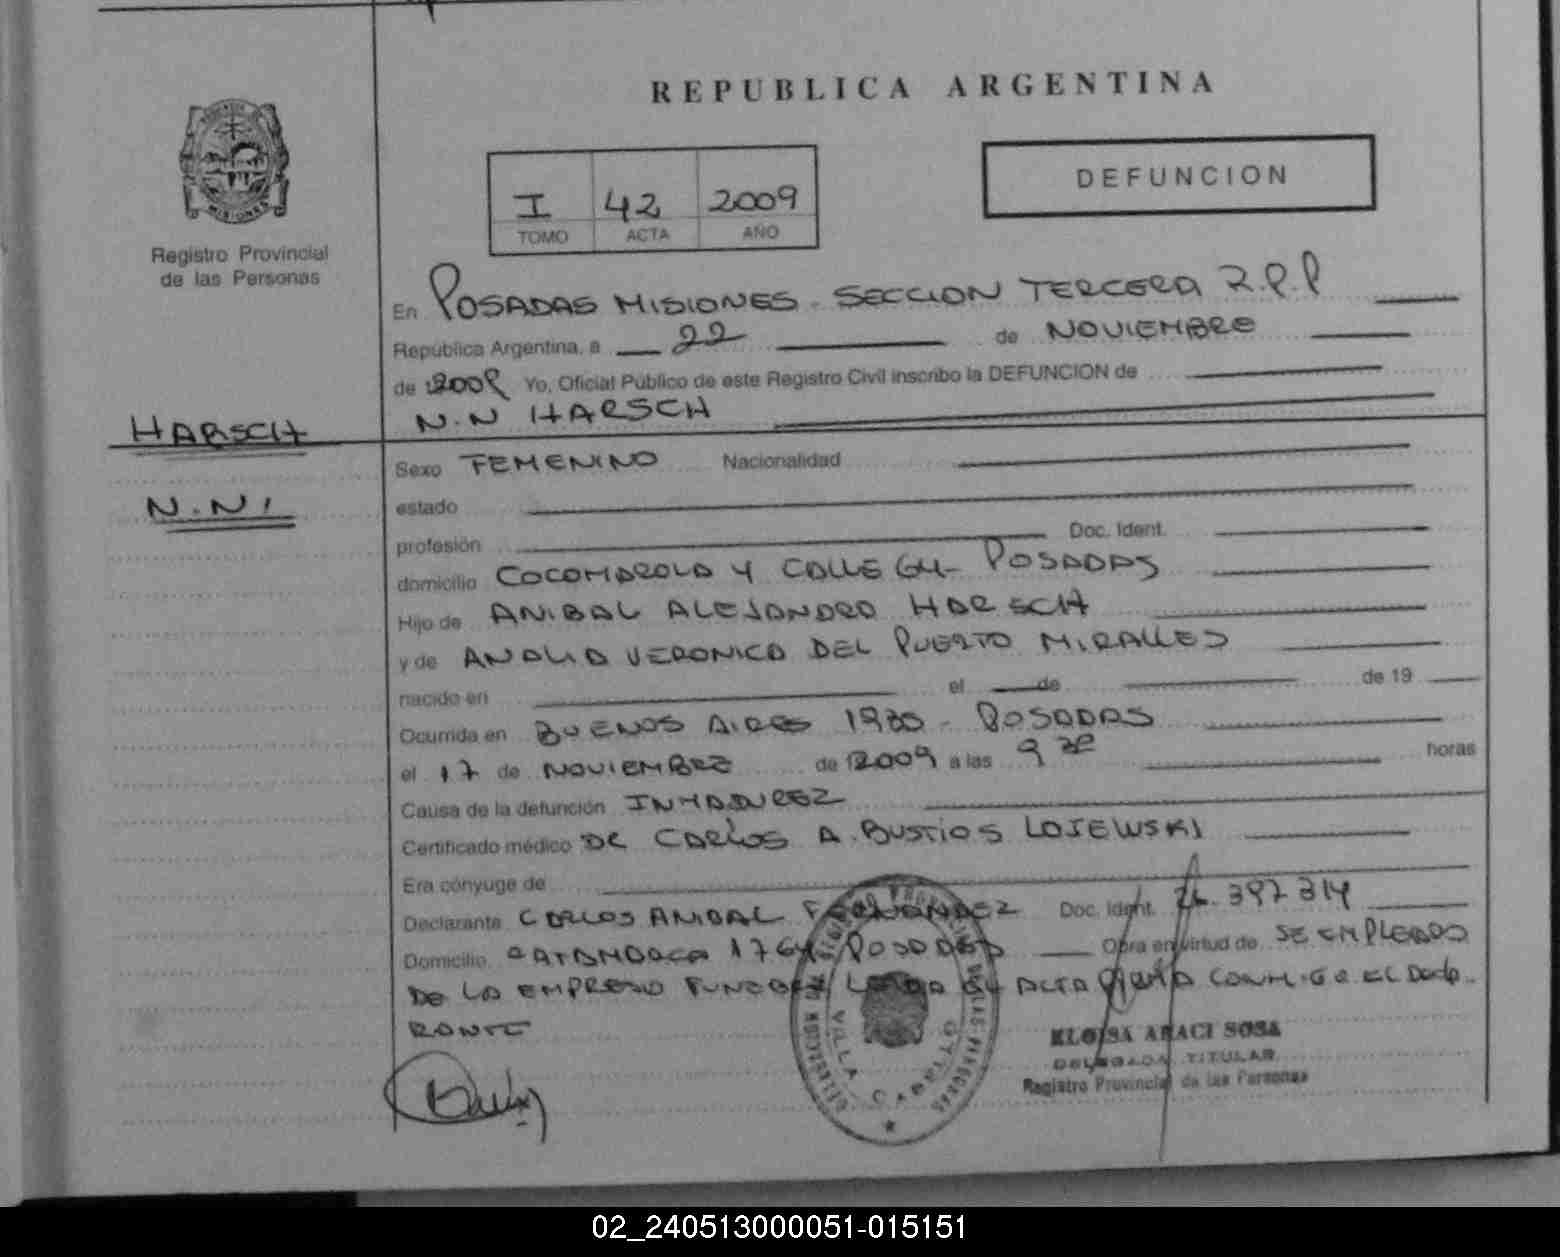 REPUBLICA ARGENTINA
MISIONES
Registro Provincial
de las Personas
I 42 2009
TOMO ACTA AÑO
DEFUNCION
En POSADAS MISIONES - SECCION TERCERA R.P.P
República Argentina, a 22 de NOVIEMBRE
de 2009 Yo, Oficial Público de este Registro Civil inscribo la DEFUNCION de
N.N HARSCH
HARSCH
N.N.
Sexo FEMENINO Nacionalidad
estado
profesión Doc. Ident.
domicilio COCOMAROLA Y CALLE 64 - POSADAS
Hijo de ANIBAL ALEJANDRO HARSCH
y de ANALIA VERONICA DEL PUERTO MIRALLES
nacido en el de de 19
Ocurrida en BUENOS AIRES 1930 - POSADAS
el 17 de NOVIEMBRE de 2009 a las 9 30 horas
Causa de la defunción INMADUREZ
Certificado médico DR CARLOS A. BUSTIOS LOJEWSKI
Era cónyuge de
Declarante CARLOS ANIBAL FERNANDEZ Doc. Ident. 26.397.314
Domicilio CATAMARCA 1764 POSADAS Obra en virtud de SE EMPLEADO
DE LA EMPRESA LEIDA EL ACTA FIRMA CONMIGO EL DECLA-
RANTE
VILLA CABELLO
ELOISA ARACI SOSA
DELEGADA TITULAR
Registro Provincial de las Personas
02_240513000051-015151